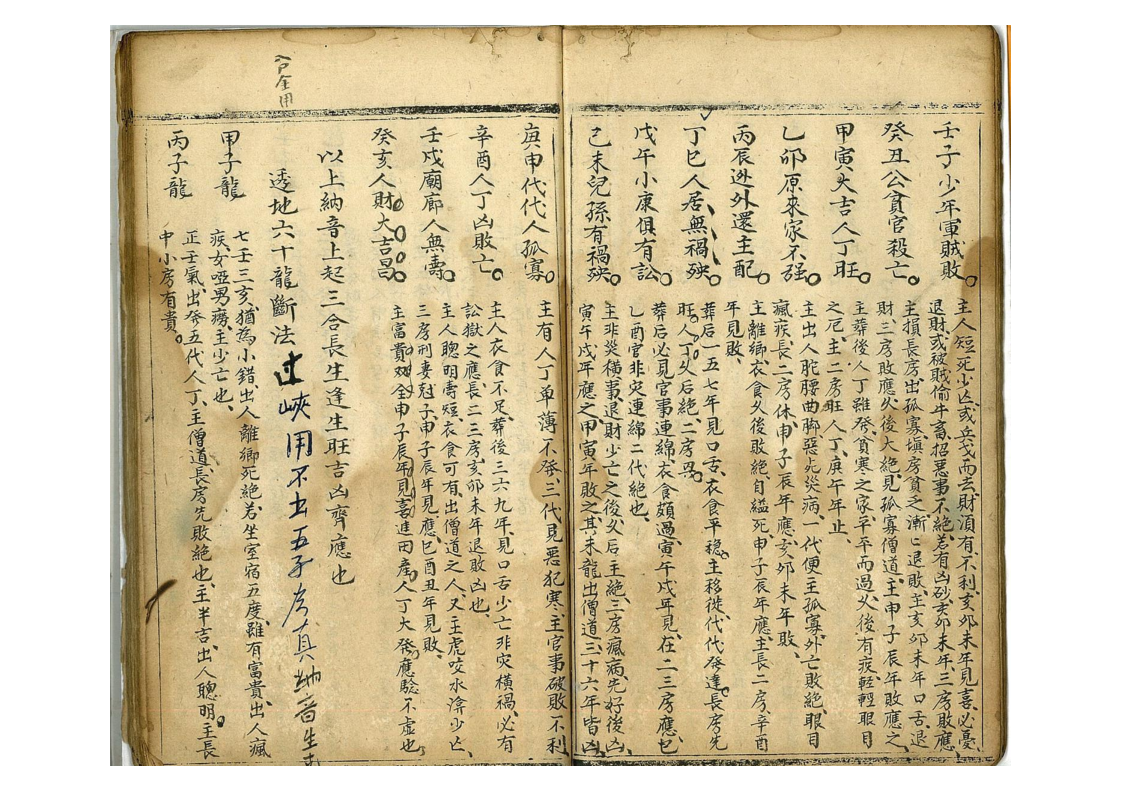 壬子小少年軍賊敗
主人短死少亡或兵戈而去財湏有不利亥卯未年見喜必憂
退財或被賊偷牛畜招惡事不絕若有凶砂亥卯未年三房敗應
癸丑公貧官殺亡
主損長房出孤寡填房貧之漸〻退敗至亥卯未年口舌退
財三房敗應久後大絕見孤寡僧道主申子辰年敗應之
甲寅大吉人丁旺
主葬後人丁雖發貧寒之家平平而過久後有疾輕輕眼目
之厄主二房旺人丁庚午年止
乙卯原來家不強
主出人駝腰曲脚惡死災病一代便主孤寡外亡敗絕眼目
瘋疾長二房休申子辰年應亥卯未年敗
丙辰迯外還主配
主離鄉衣食久後敗絕自縊死申子辰年應主長二房辛酉
年見敗
丁巳人居無禍殃
葬后一五七年見口舌衣食平穩主移徙代代發達長房先
旺人丁久后絕二房
戊午小康俱有訟
葬后必見官事連綿衣食頗過寅午戌年見在二三房應
乙酉官非災連綿二代絕也
己未兒孫有禍殃
主非災橫事退財少亡之後久后主絕三房瘋病先好後凶
寅午戌年應之甲寅年敗之其未龍出僧道三十六年皆凶
庚申代代人孤寡
主有人丁单薄不發三代見惡犯寒主官事破敗不利
辛酉人丁凶敗亡
主人衣食不足葬後三六九年見口舌少亡非災橫禍必有
訟獄之應長二三房亥卯未年退敗凶也
壬戌廟廊人無壽
主人聰明壽短衣食可有出僧道之人又主虎咬水淬少亡
三房刑妻尅子申子辰年見應巳酉丑年見敗
癸亥人財大吉昌
主富貴双全申子辰年見喜進田產人丁大發應驗不虛也
以上納音上起三合長生逢生旺吉凶齊應也
透地六十龍斷法 过峽用不出五子房真納音生
甲子龍
七壬三亥猶為小錯出人離鄉死絕若坐室宿五度雖有富貴出人瘋
疾女啞男癆主少亡也
丙子龍
正壬氣出發五代人丁主僧道長房先敗絕也主半吉出人聰明主長
中小房有貴
合全用